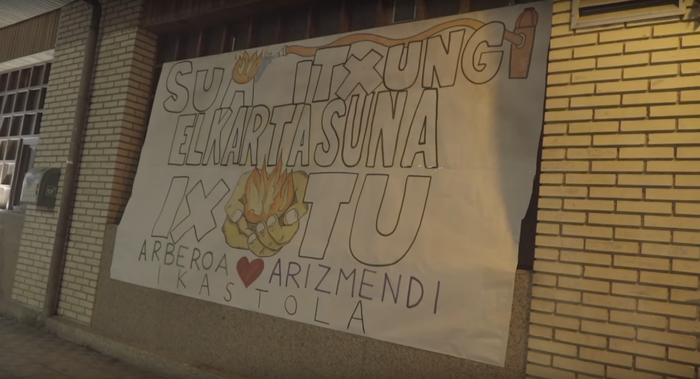 SUA ITXUNGI
ELKARTASUNA
IXOTU
ARBEROA ARIZMENDI
IKASTOLA